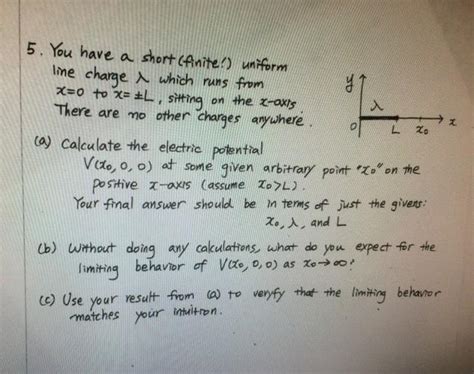 5. You have a short (finite!) uniform
line charge λ which runs from
x=0 to x=±L, sitting on the x-axis
There are no other charges anywhere.
(a) Calculate the electric potential
V(x₀, 0, 0) at some given arbitrary point "x₀" on the
positive x-axis (assume x₀>L).
Your final answer should be in terms of just the givens:
x₀, λ, and L
(b) Without doing any calculations, what do you expect for the
limiting behavior of V(x₀, 0, 0) as x₀→∞?
(c) Use your result from (a) to veryfy that the limiting behavior
matches your intuitron.
y
λ
0 L x₀ x